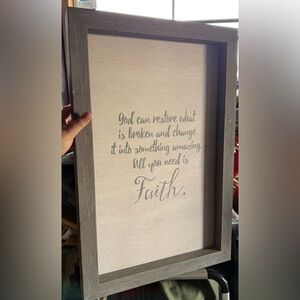 God can restore what
is broken and change
it into something amazing.
All you need is
Faith.